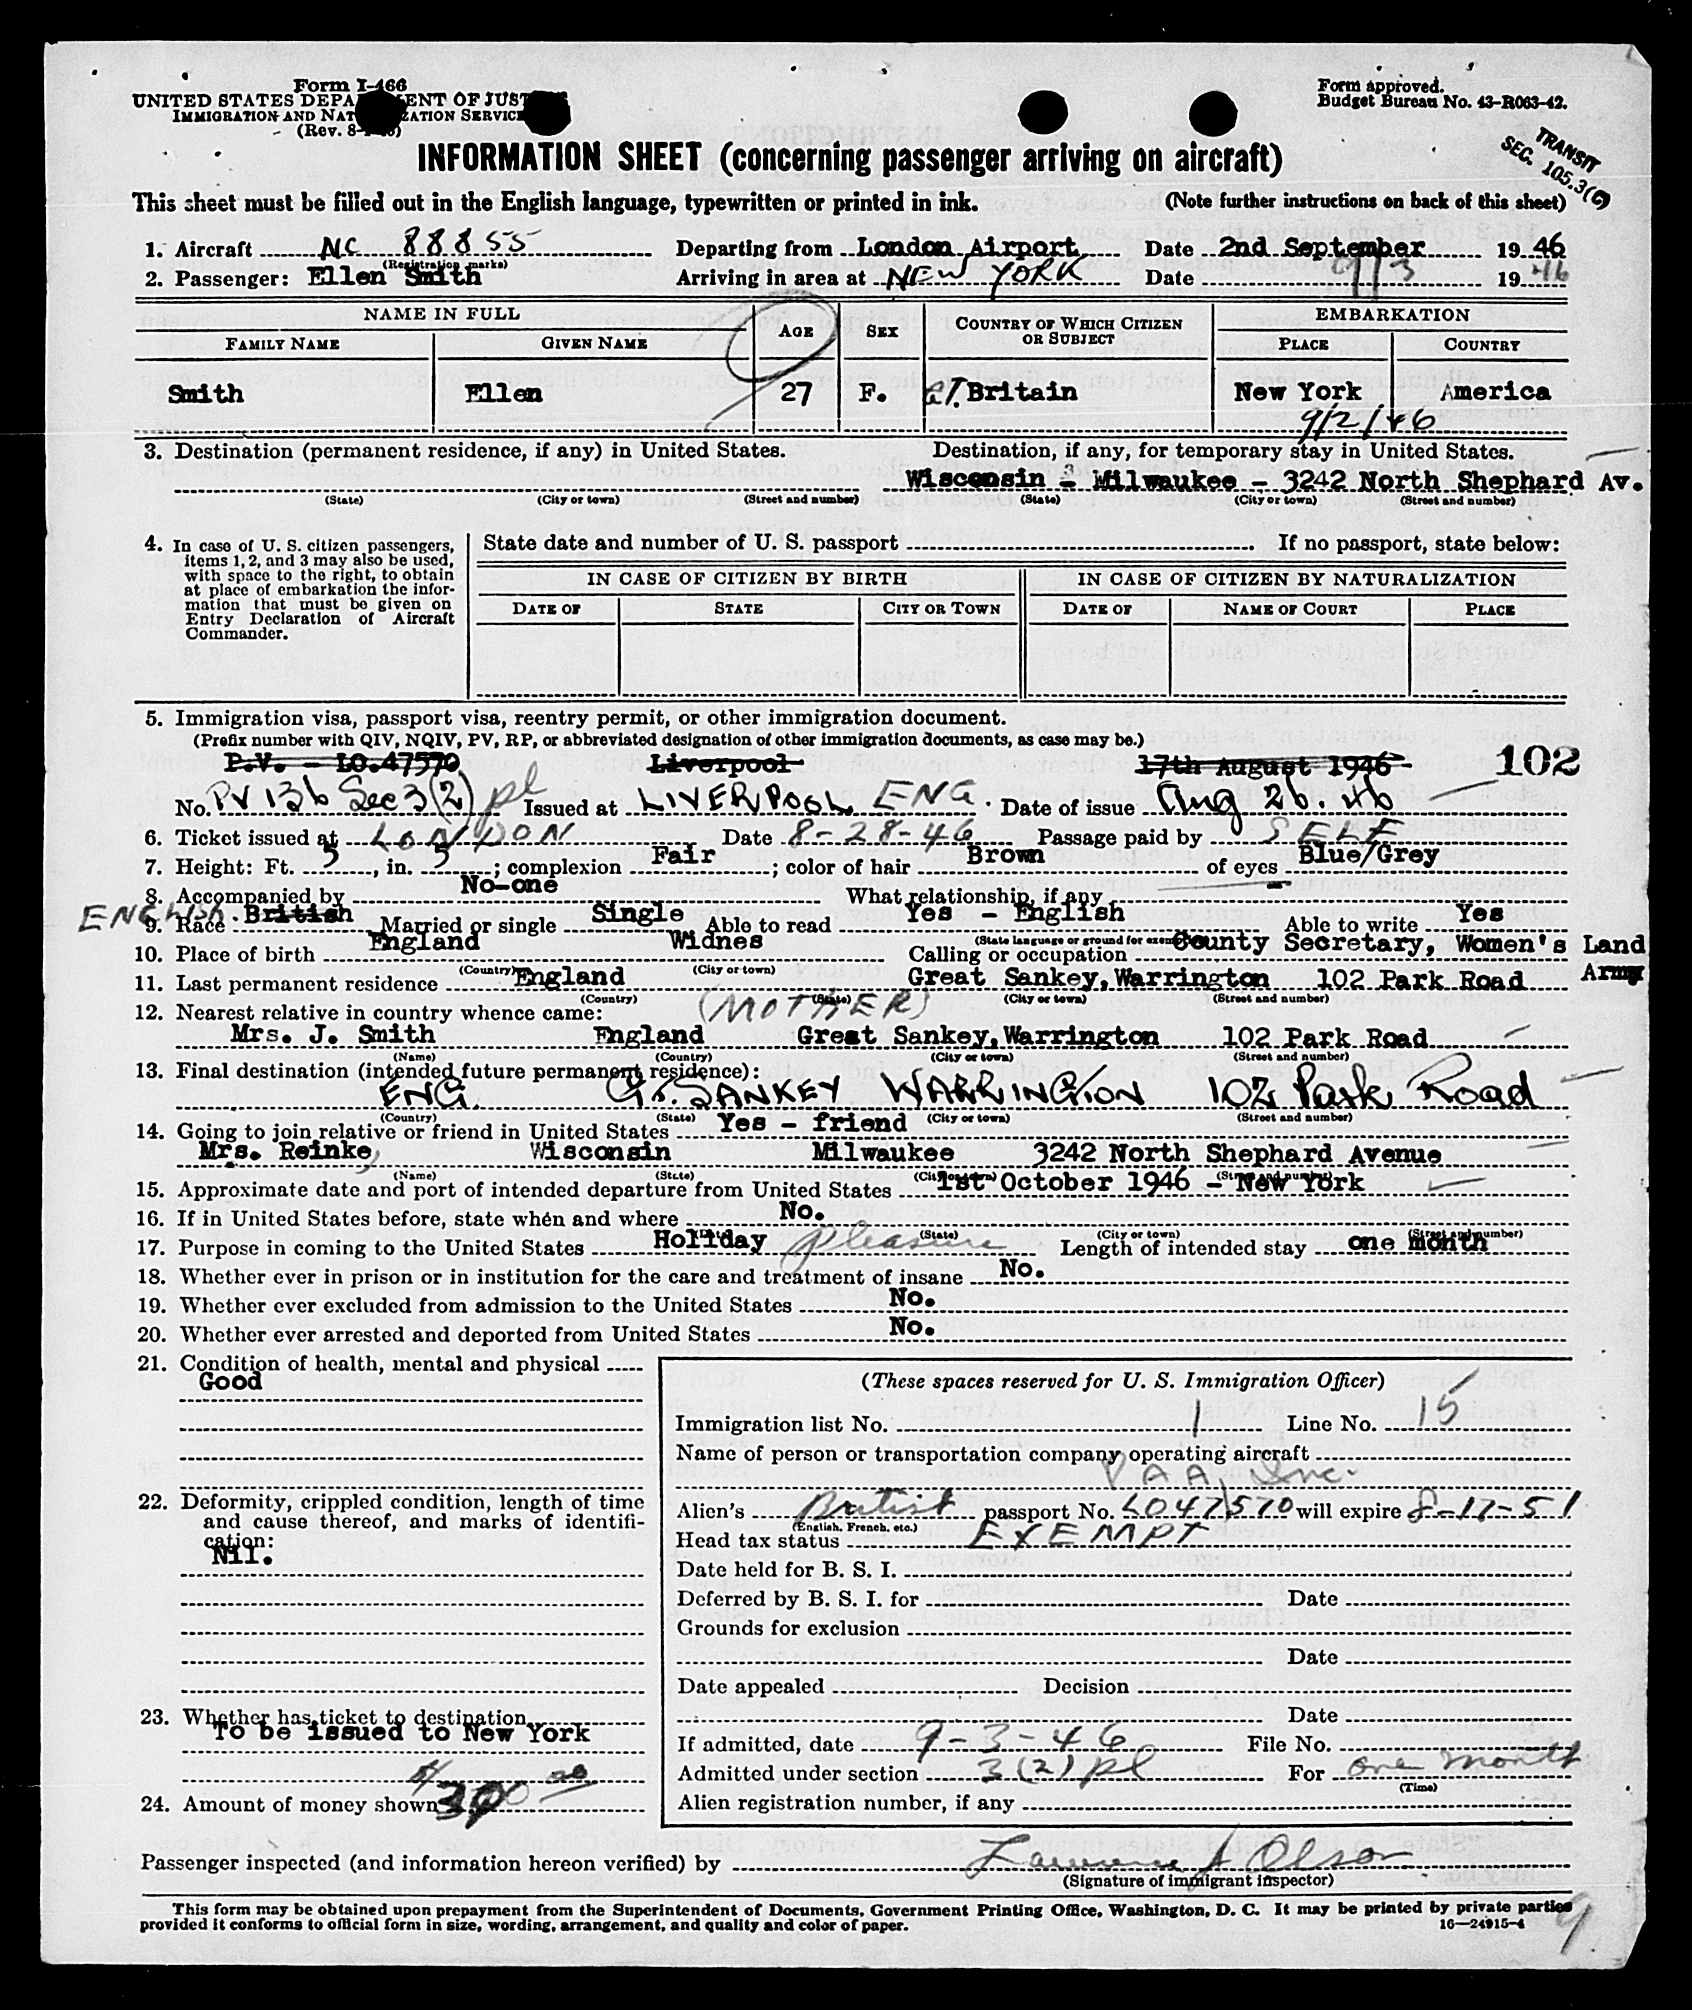 Form I-466
UNITED STATES DEPARTMENT OF JUSTICE
IMMIGRATION AND NATURALIZATION SERVICE
Form approved.
Budget Bureau No. 43-R063-42.
TRANSIT
SEC. 105.3(C)
INFORMATION SHEET (concerning passenger arriving on aircraft)
This sheet must be filled out in the English language, typewritten or printed in ink. (Note further instructions on back of this sheet)
1. Aircraft NC 88855 Departing from London Airport Date 2nd September 1946
(Registration marks)
2. Passenger: Ellen Smith Arriving in area at NEW YORK Date 9/3 1946
NAME IN FULL AGE SEX COUNTRY OF WHICH CITIZEN OR SUBJECT EMBARKATION
FAMILY NAME GIVEN NAME PLACE COUNTRY
Smith Ellen 27 F. GT. Britain New York America
9/2/46
3. Destination (permanent residence, if any) in United States. Destination, if any, for temporary stay in United States.
Wisconsin - Milwaukee - 3242 North Shephard Av.
(State) (City or town) (Street and number) (State) (City or town) (Street and number)
4. In case of U. S. citizen passengers, items 1, 2, and 3 may also be used, with space to the right, to obtain at place of embarkation the information that must be given on Entry Declaration of Aircraft Commander.
State date and number of U. S. passport If no passport, state below:
IN CASE OF CITIZEN BY BIRTH IN CASE OF CITIZEN BY NATURALIZATION
DATE OF STATE CITY OR TOWN DATE OF NAME OF COURT PLACE
5. Immigration visa, passport visa, reentry permit, or other immigration document.
(Prefix number with QIV, NQIV, PV, RP, or abbreviated designation of other immigration documents, as case may be.)
P.V. - LO.47570 Liverpool 17th August 1946 102
No. PV 136 Sec 3(2) pl Issued at LIVERPOOL ENG. Date of issue Aug 26. 46
6. Ticket issued at LONDON Date 8-28-46 Passage paid by SELF
7. Height: Ft. 5, in. 5; complexion Fair; color of hair Brown of eyes Blue/Grey
8. Accompanied by No-one What relationship, if any
ENGLISH
9. Race British Married or single Single Able to read Yes - English Able to write Yes
(State language or ground for exemption)
10. Place of birth England Widnes Calling or occupation County Secretary, Women's Land Army
(Country) (City or town)
11. Last permanent residence England Great Sankey, Warrington 102 Park Road
(Country) (State) (City or town) (Street and number)
12. Nearest relative in country whence came: (MOTHER)
Mrs. J. Smith England Great Sankey, Warrington 102 Park Road
(Name) (Country) (City or town) (Street and number)
13. Final destination (intended future permanent residence):
ENG. GT. SANKEY WARRINGTON 102 Park Road
(Country) (State) (City or town) (Street and number)
14. Going to join relative or friend in United States Yes - friend
Mrs. Reinke, Wisconsin Milwaukee 3242 North Shephard Avenue
(Name) (State) (City or town) (Street and number)
15. Approximate date and port of intended departure from United States 1st October 1946 - New York
16. If in United States before, state when and where No.
(State) (City or town) (Street and number)
17. Purpose in coming to the United States Holiday pleasure Length of intended stay one month
18. Whether ever in prison or in institution for the care and treatment of insane No.
19. Whether ever excluded from admission to the United States No.
20. Whether ever arrested and deported from United States No.
21. Condition of health, mental and physical
Good
22. Deformity, crippled condition, length of time and cause thereof, and marks of identification:
Nil.
23. Whether has ticket to destination
To be issued to New York
24. Amount of money shown
(These spaces reserved for U. S. Immigration Officer)
Immigration list No. 1 Line No. 15
Name of person or transportation company operating aircraft
PAA, Inc.
Alien's British passport No. LO47570 will expire 8-17-51
(English, French, etc.)
Head tax status EXEMPT
Date held for B. S. I.
Deferred by B. S. I. for Date
Grounds for exclusion
Date
Date appealed Decision
Date
If admitted, date 9-3-46 File No.
Admitted under section 3(2) pl For one month
(Time)
Alien registration number, if any
Passenger inspected (and information hereon verified) by Lawrence A Olson
(Signature of immigrant inspector)
This form may be obtained upon prepayment from the Superintendent of Documents, Government Printing Office, Washington, D. C. It may be printed by private parties
provided it conforms to official form in size, wording, arrangement, and quality and color of paper. 16-24915-4
9